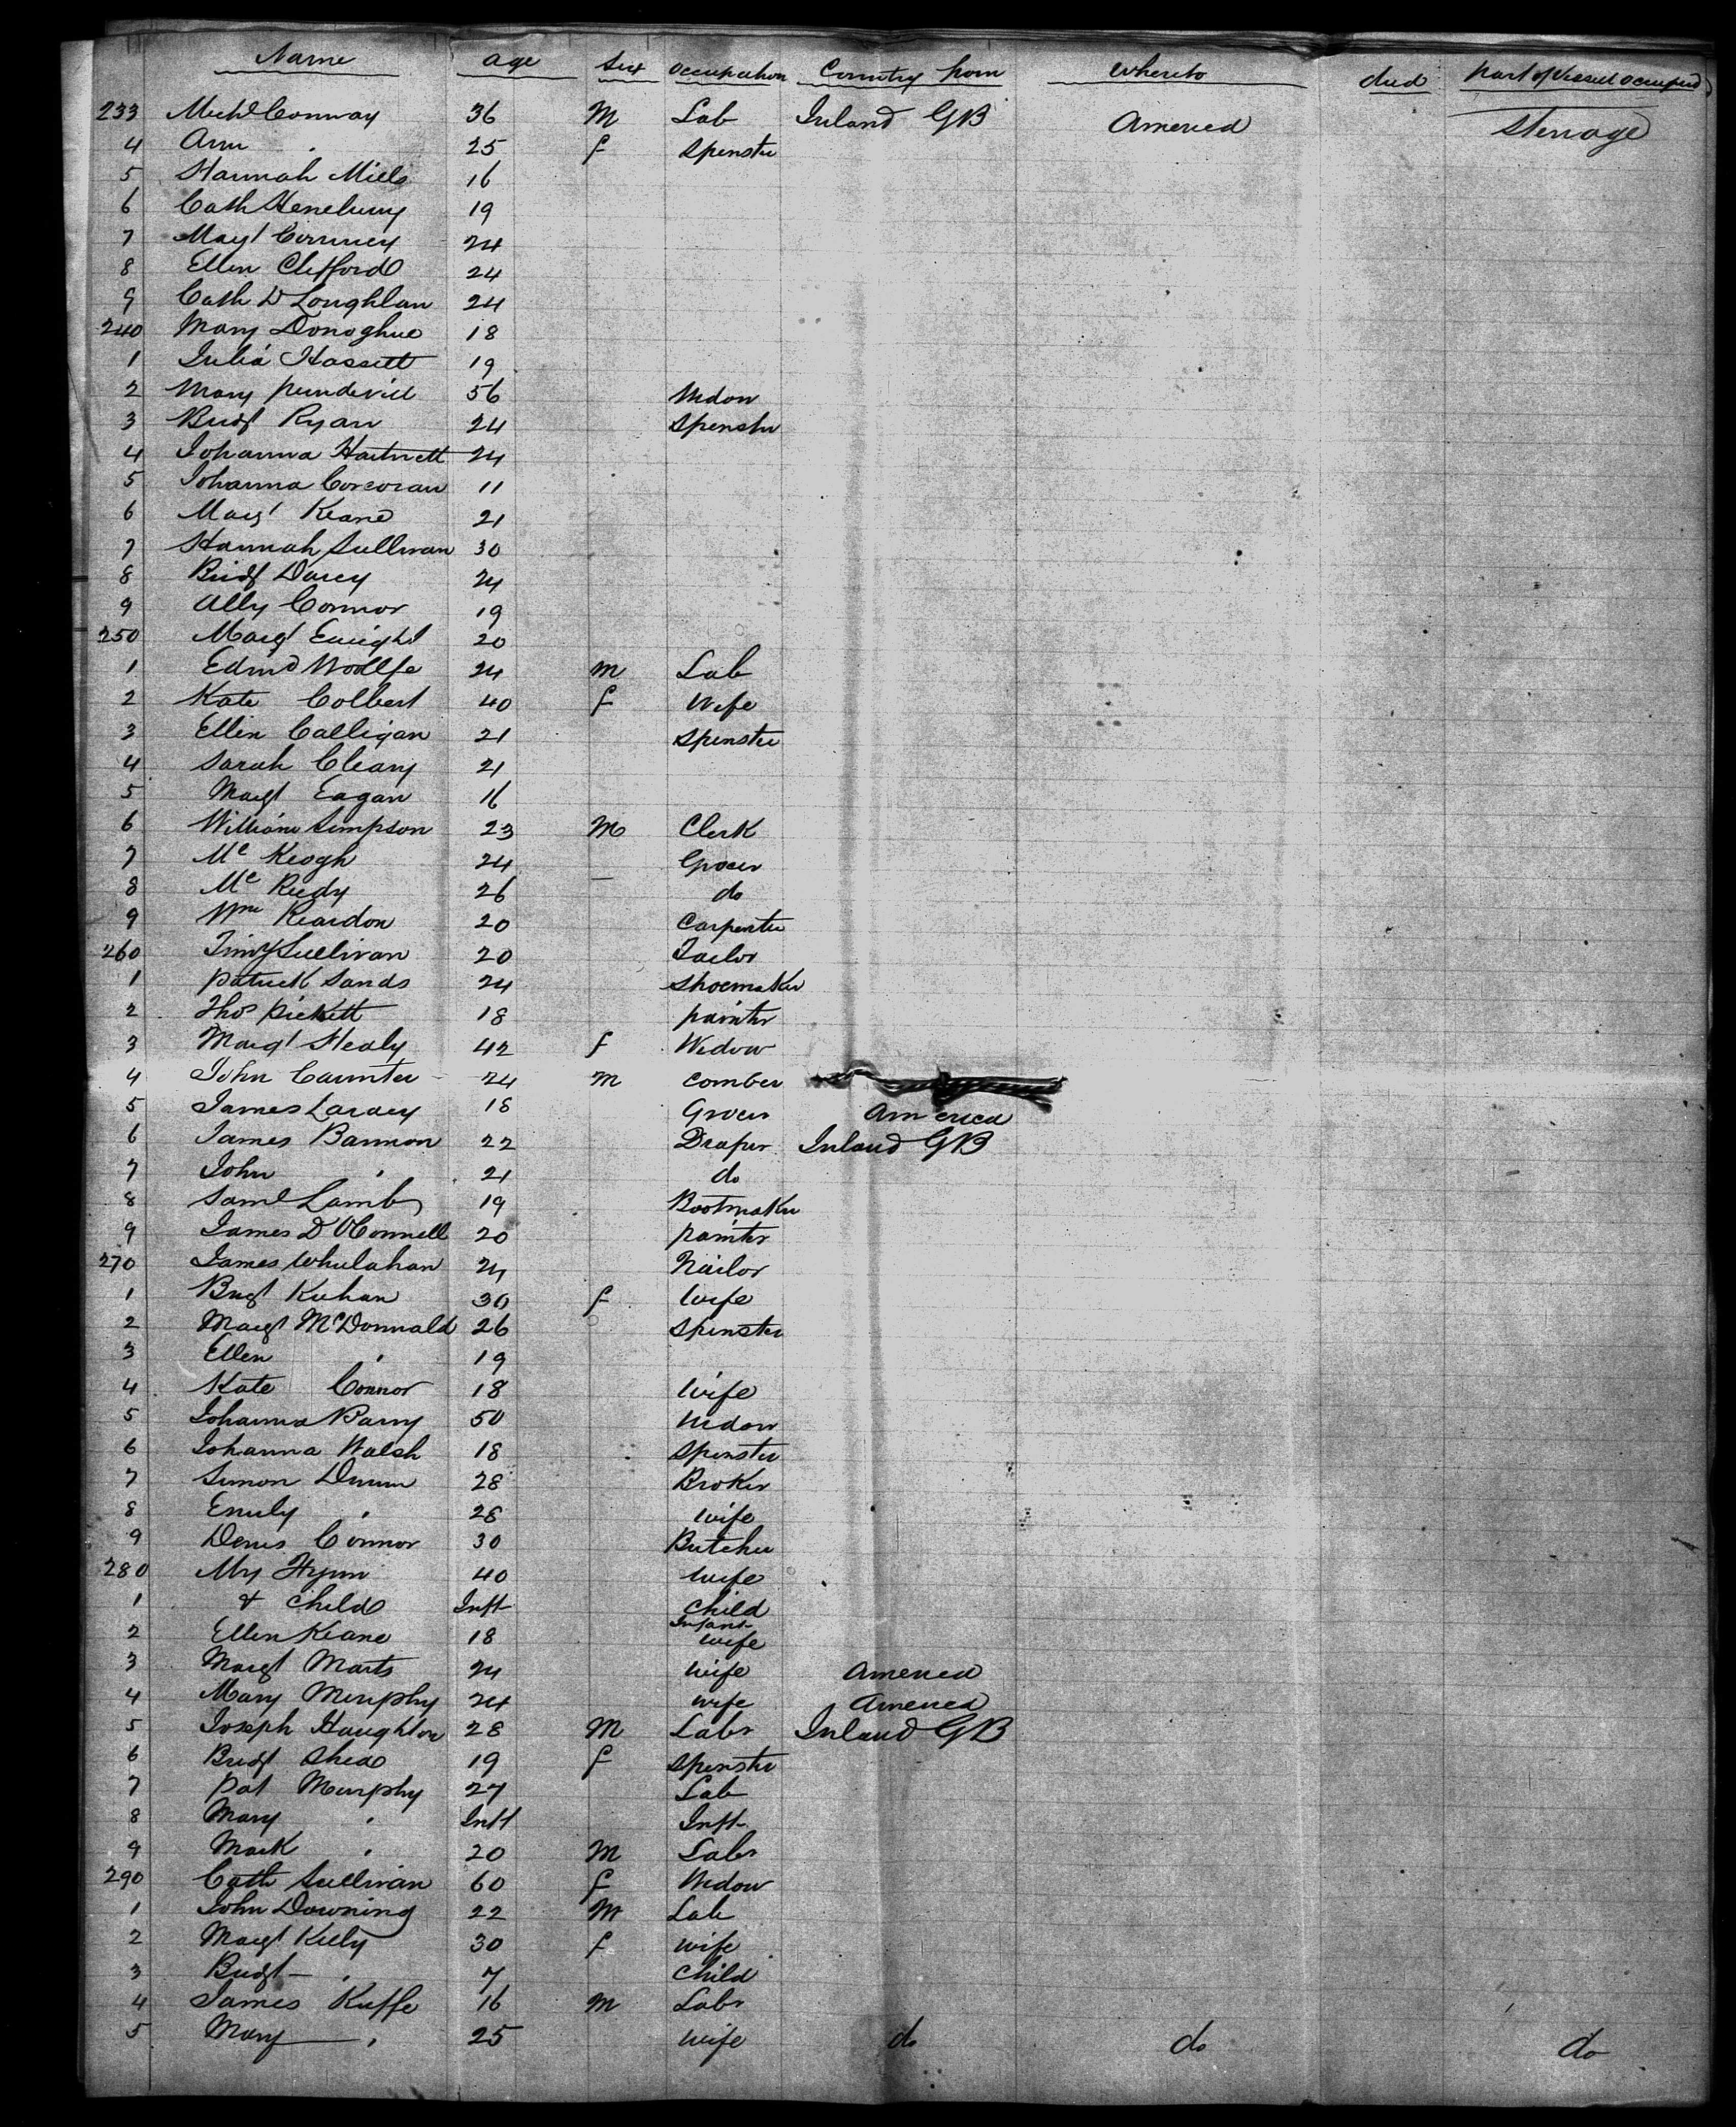 Name age Sex Occupation Country from Whereto died part of Vessel Occupied
233 Michl Conway 36 M Lab Ireland GB America Sterrage
4 Ann " 25 f Spenster
5 Hannah Miels 16
6 Cath Heneburry 19
7 Magt 24
8 Ellen Clifford 24
9 Cath D Loughlan 24
240 Mary Donoghue 18
1 Julia Hassett 19
2 Mary 56 Wedow
3 Bridt Ryan 24 Spenster
4 Johanna Hartnett 24
5 Johanna Corcoran 11
6 Margt Keane 21
7 Hannah Sullivan 30
8 Bridt Darcy 24
9 Ally Connor 19
250 Margt Enright 20
1 Edmd Woollfe 24 M Lab
2 Kate Colbert 40 f Wife
3 Ellen Calligan 21 Spenster
4 Sarah Cleary 21
5 Margt Eagan 16
6 William Simpson 23 M Clerk
7 Mc Keogh 24 Grocer
8 Mc Reedy 26 do
9 Wm Reardon 20 Carpenter
260 Timy Sullivan 20 Tailor
1 Patrick Sands 24 Shoemaker
2 Thos Pickett 18 painter
3 Margt Healy 42 f Wedow
4 John 24 M Comber
5 James Laracy 18 Grocer America
6 James Bannon 22 Draper Ireland GB
7 John " 21 do
8 Saml Lamb 19 Bootmaker
9 James D OConnell 20 painter
270 James Whulahan 24 Nailor
1 Brigt Kuhan 30 f Wife
2 Margt McDonnald 26 Spinster
3 Ellen " 19
4 Kate Connor 18 Wife
5 Johanna Barry 50 Wedow
6 Johanna Walsh 18 Spenster
7 Simon Dunn 28 Broker
8 Emily " 28 Wife
9 Denis Connor 30 Butcher
280 Mrs Flynn 40 Wife
1 & Child Inft Child Infant
2 Ellen Keane 18 wife
3 Margt Marts 24 Wife America
4 Mary Murphy 24 wife America
5 Joseph Haughton 28 M Labr Ireland GB
6 Bridt Shea 19 f Spenster
7 Pat Murphy 27 Lab
8 Mary " Inft Inft
9 Mark " 20 M Labr
290 Cath Sullivan 60 f Wedow
1 John Downing 22 M Lab
2 Margt Kelly 30 f wife
3 Bridt " 7 Child
4 James Kuffe 16 M Labr
5 Mary " 25 wife do do do